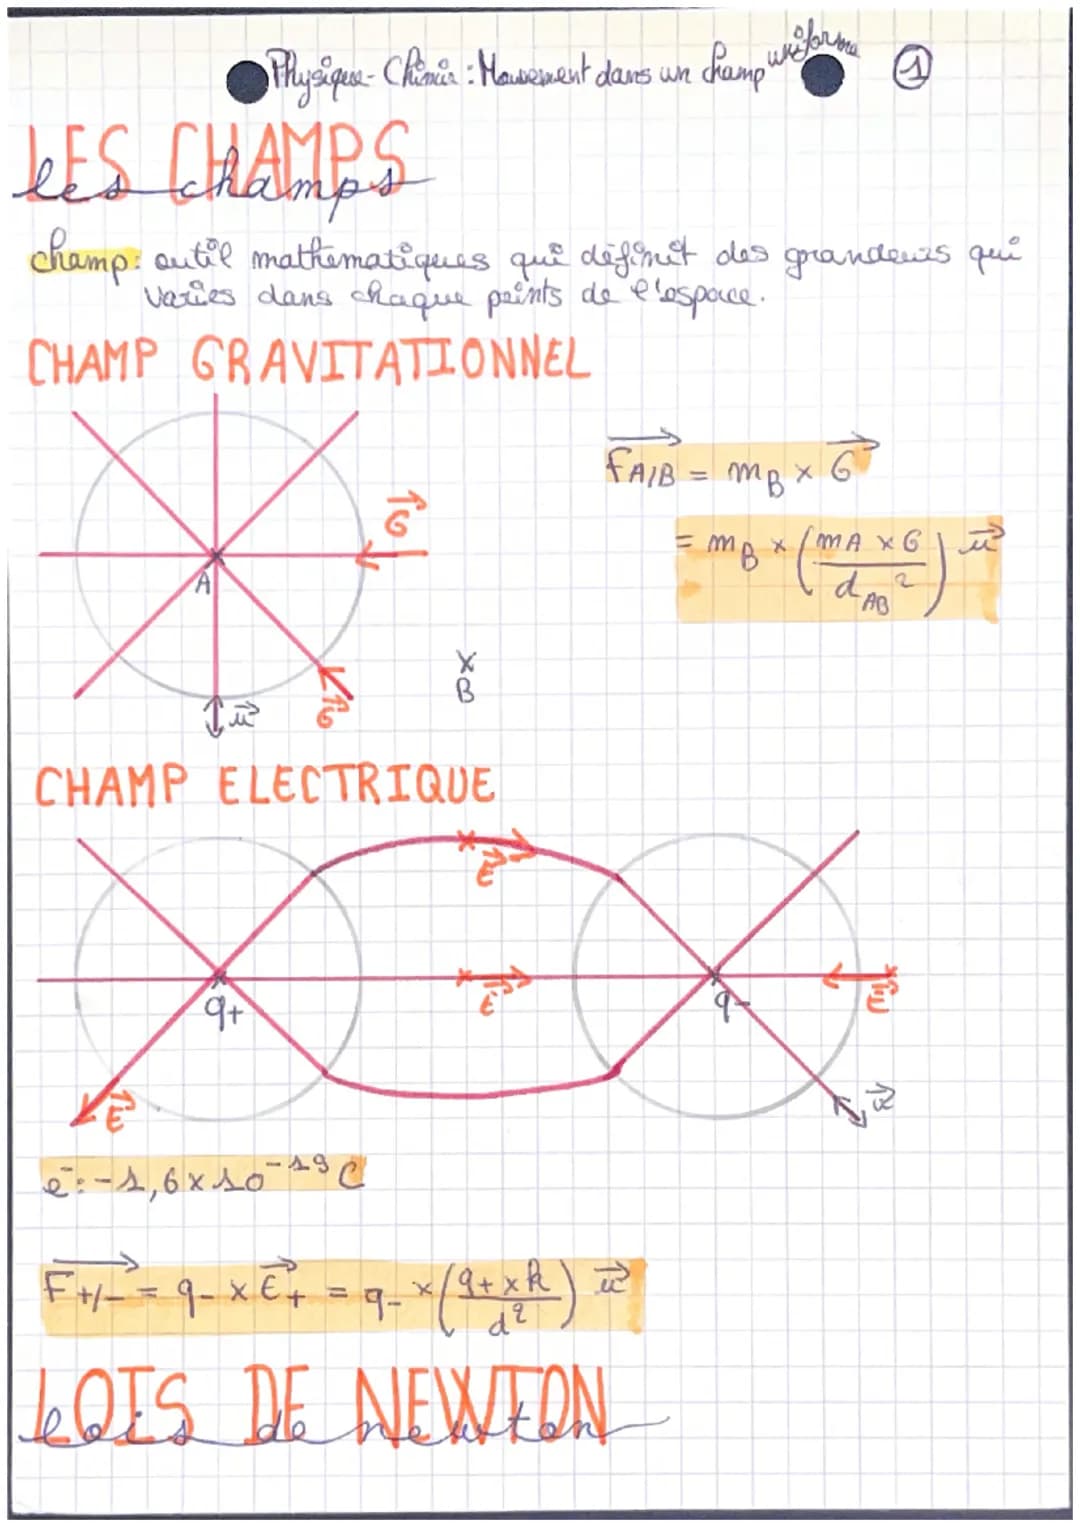 Physique-Chimie : Mouvement dans un champ uniforme
1
LES CHAMPS
les champs
champ: outil mathématiques qui définit des grandeurs qui
varies dans chaque points de l'espace.
CHAMP GRAVITATIONNEL
F A/B = mB × G
G
= mB × (mA × G / dAB²) u
A
B
u
G
CHAMP ELECTRIQUE
E
E
E
q+
q-
E
u
e-: -1,6×10⁻¹⁹ C
F+/- = q- × E+ = q- × (q+ × k / d²) u
LOIS DE NEWTON
lois de newton